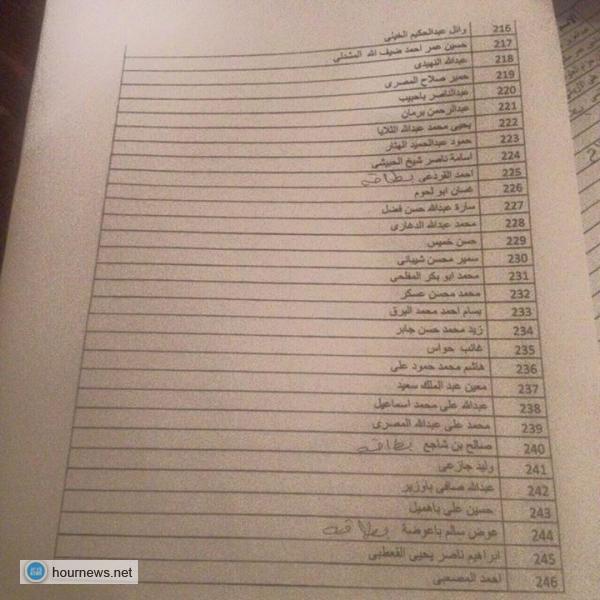 216 وائل عبدالحكيم الخيلى
217 حسين عمر احمد ضيف الله المشدلى
218 عبدالله النهيدى
219 حمير صلاح المصرى
220 عبدالناصر باحبيب
221 عبدالرحمن برمان
222 يحيى محمد عبدالله الثلايا
223 حمود عبدالحميد الهتار
224 اسامة ناصر شيخ الحبيشى
225 احمد القردعى بطاقه
226 غسان ابو لحوم
227 سارة عبدالله حسن فضل
228 محمد عبدالله الدهارى
229 حسن خميس
230 سمير محسن شيبانى
231 محمد ابو بكر المفلحى
232 محمد محسن عسكر
233 بسام احمد محمد البرق
234 زيد محمد حسن جابر
235 غائب حواس
236 هاشم محمد حمود على
237 معين عبد الملك سعيد
238 عبدالله على محمد اسماعيل
239 محمد على عبدالله المصرى
240 صالح بن شاجع بطاقه
241 وليد جازعى
242 عبدالله صافى باوزير
243 حسين على باهميل
244 عوض سالم باعوضة بطاقه
245 ابراهيم ناصر يحيى القعطبى
246 احمد المصعبى
hournews.net